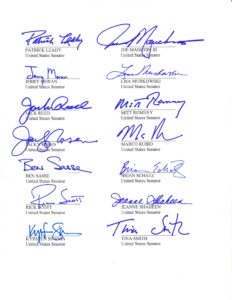 Patrick Leahy
PATRICK LEAHY
United States Senator
JOE MANCHIN III
United States Senator
Jerry Moran
JERRY MORAN
United States Senator
Lisa Murkowski
LISA MURKOWSKI
United States Senator
Jack Reed
JACK REED
United States Senator
Mitt Romney
MITT ROMNEY
United States Senator
Jacky Rosen
JACKY ROSEN
United States Senator
MARCO RUBIO
United States Senator
Ben Sasse
BEN SASSE
United States Senator
Brian Schatz
BRIAN SCHATZ
United States Senator
Rick Scott
RICK SCOTT
United States Senator
Jeanne Shaheen
JEANNE SHAHEEN
United States Senator
United States Senator
Tina Smith
TINA SMITH
United States Senator